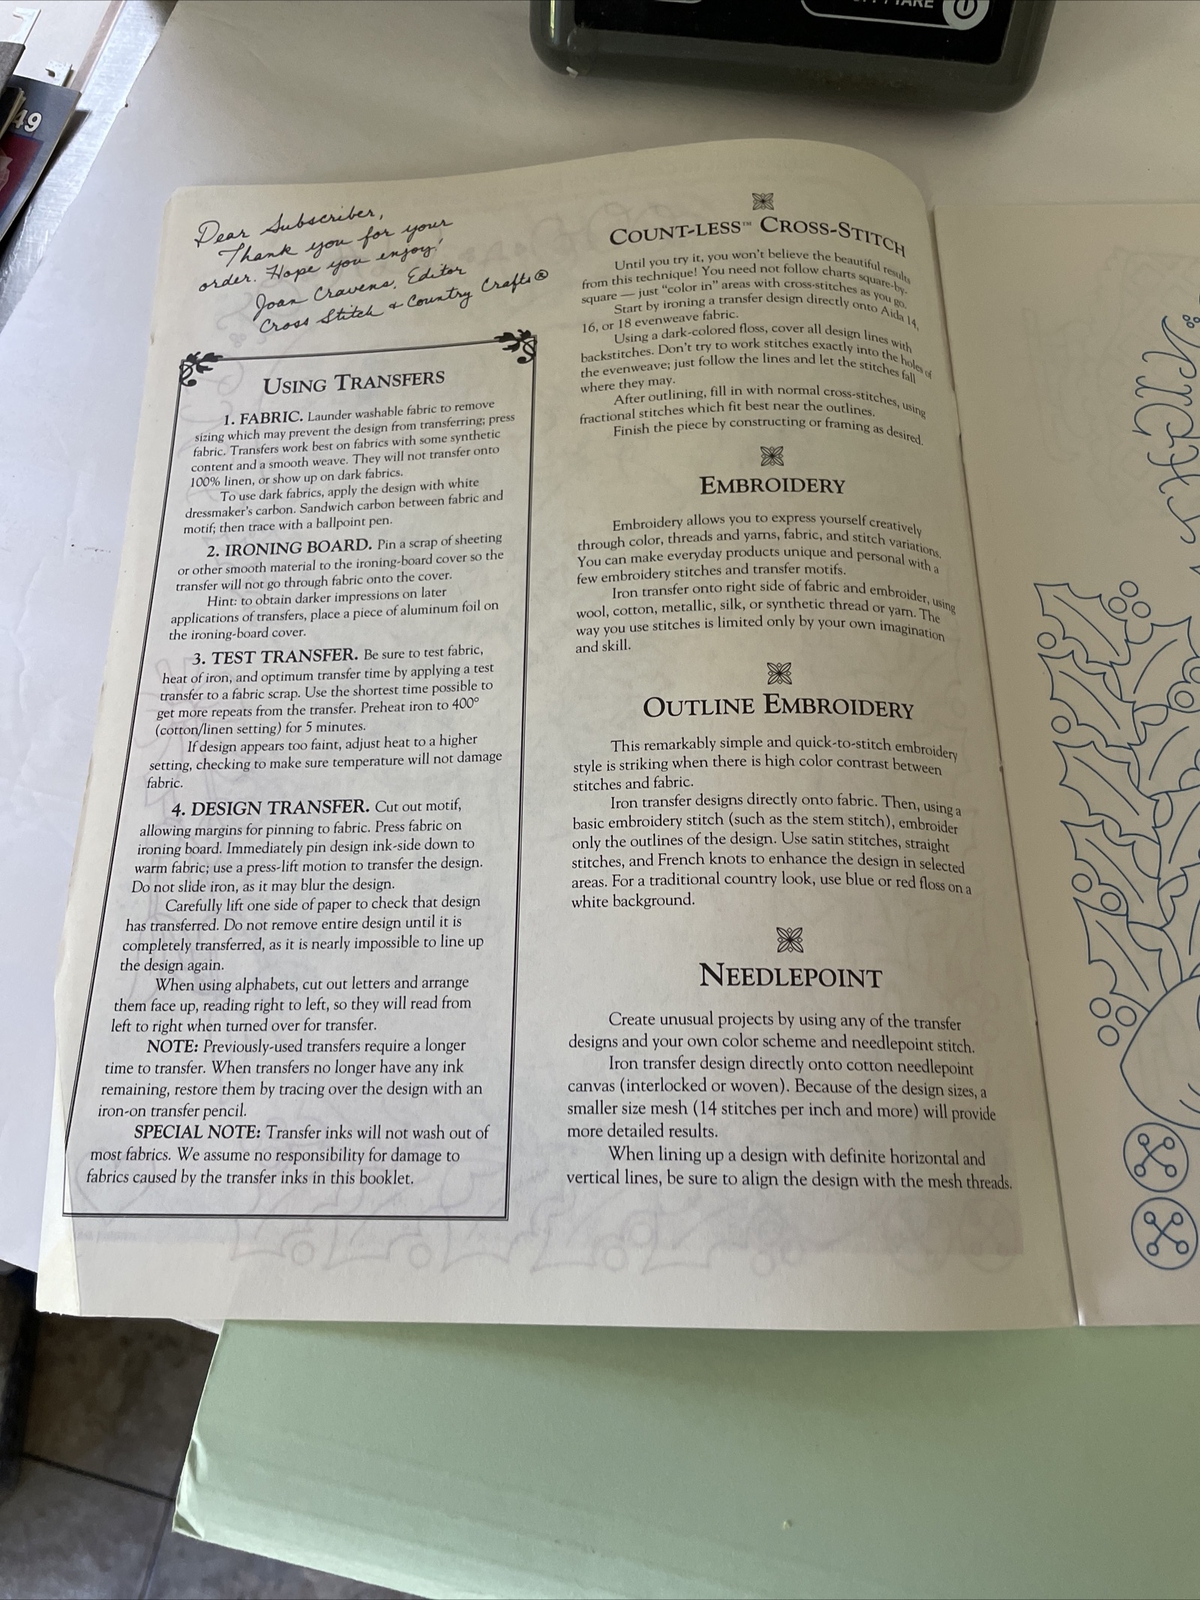 TARE
49
Dear Subscriber,
Thank you for your
order. Hope you enjoy!
Joan Cravens, Editor
Cross Stitch & Country Crafts®
USING TRANSFERS
1. FABRIC. Launder washable fabric to remove
sizing which may prevent the design from transferring; press
fabric. Transfers work best on fabrics with some synthetic
content and a smooth weave. They will not transfer onto
100% linen, or show up on dark fabrics.
To use dark fabrics, apply the design with white
dressmaker's carbon. Sandwich carbon between fabric and
motif; then trace with a ballpoint pen.
2. IRONING BOARD. Pin a scrap of sheeting
or other smooth material to the ironing-board cover so the
transfer will not go through fabric onto the cover.
Hint: to obtain darker impressions on later
applications of transfers, place a piece of aluminum foil on
the ironing-board cover.
3. TEST TRANSFER. Be sure to test fabric,
heat of iron, and optimum transfer time by applying a test
transfer to a fabric scrap. Use the shortest time possible to
get more repeats from the transfer. Preheat iron to 400°
(cotton/linen setting) for 5 minutes.
If design appears too faint, adjust heat to a higher
setting, checking to make sure temperature will not damage
fabric.
4. DESIGN TRANSFER. Cut out motif,
allowing margins for pinning to fabric. Press fabric on
ironing board. Immediately pin design ink-side down to
warm fabric; use a press-lift motion to transfer the design.
Do not slide iron, as it may blur the design.
Carefully lift one side of paper to check that design
has transferred. Do not remove entire design until it is
completely transferred, as it is nearly impossible to line up
the design again.
When using alphabets, cut out letters and arrange
them face up, reading right to left, so they will read from
left to right when turned over for transfer.
NOTE: Previously-used transfers require a longer
time to transfer. When transfers no longer have any ink
remaining, restore them by tracing over the design with an
iron-on transfer pencil.
SPECIAL NOTE: Transfer inks will not wash out of
most fabrics. We assume no responsibility for damage to
fabrics caused by the transfer inks in this booklet.
COUNT-LESS™ CROSS-STITCH
Until you try it, you won't believe the beautiful results
from this technique! You need not follow charts square-by-
square — just "color in" areas with cross-stitches as you go.
Start by ironing a transfer design directly onto Aida 14,
16, or 18 evenweave fabric.
Using a dark-colored floss, cover all design lines with
backstitches. Don't try to work stitches exactly into the holes of
the evenweave; just follow the lines and let the stitches fall
where they may.
After outlining, fill in with normal cross-stitches, using
fractional stitches which fit best near the outlines.
Finish the piece by constructing or framing as desired.
EMBROIDERY
Embroidery allows you to express yourself creatively
through color, threads and yarns, fabric, and stitch variations.
You can make everyday products unique and personal with a
few embroidery stitches and transfer motifs.
Iron transfer onto right side of fabric and embroider, using
wool, cotton, metallic, silk, or synthetic thread or yarn. The
way you use stitches is limited only by your own imagination
and skill.
OUTLINE EMBROIDERY
This remarkably simple and quick-to-stitch embroidery
style is striking when there is high color contrast between
stitches and fabric.
Iron transfer designs directly onto fabric. Then, using a
basic embroidery stitch (such as the stem stitch), embroider
only the outlines of the design. Use satin stitches, straight
stitches, and French knots to enhance the design in selected
areas. For a traditional country look, use blue or red floss on a
white background.
NEEDLEPOINT
Create unusual projects by using any of the transfer
designs and your own color scheme and needlepoint stitch.
Iron transfer design directly onto cotton needlepoint
canvas (interlocked or woven). Because of the design sizes, a
smaller size mesh (14 stitches per inch and more) will provide
more detailed results.
When lining up a design with definite horizontal and
vertical lines, be sure to align the design with the mesh threads.